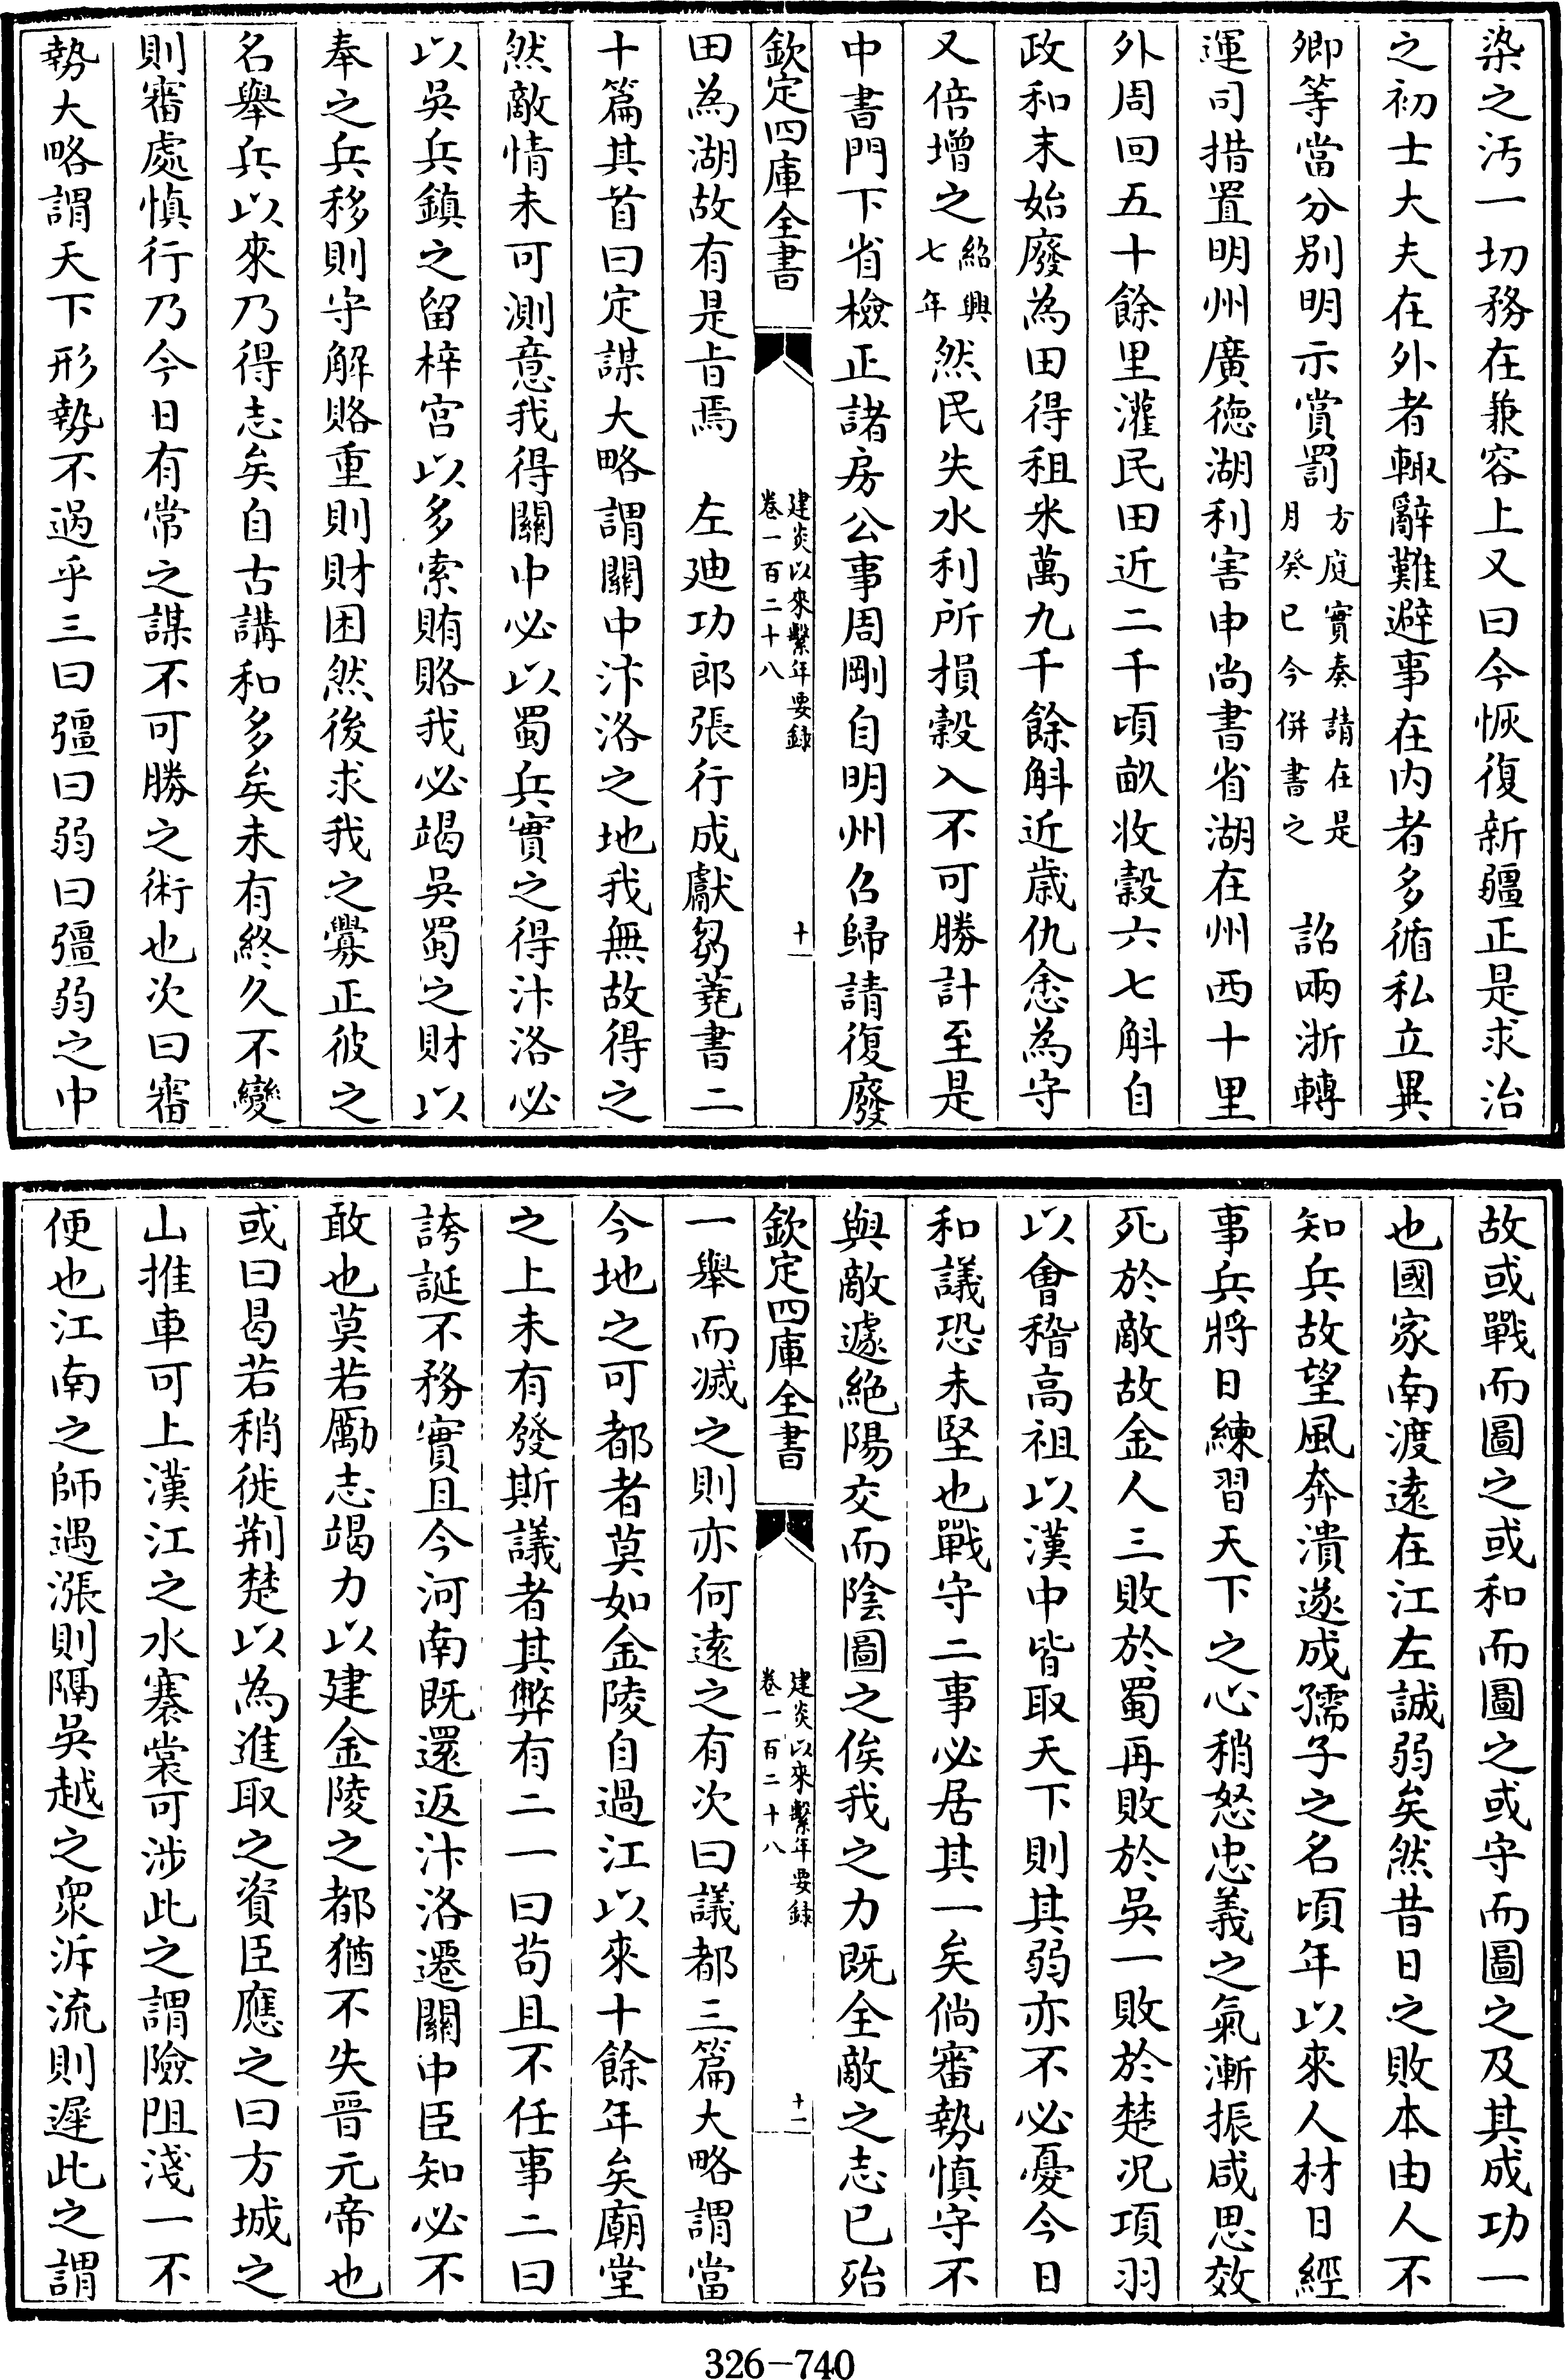 染之汚一切務在兼容上又曰今恢復新疆正是求治
之初士大夫在外者輙辭難避事在内者多循私立異
卿等當分别明示賞罰方庭實奏請在是月癸巳今併書之　詔兩浙轉
運司措置明州廣徳湖利害申尚書省湖在州西十里
外周回五十餘里灌民田近二千頃畝收穀六七斛自
政和末始廢為田得租米萬九千餘斛近歲仇悆為守
又倍增之紹興七年然民失水利所損穀入不可勝計至是
中書門下省檢正諸房公事周剛自明州召歸請復廢
欽定四庫全書　建炎以來繫年要録　卷一百二十八　十一
田為湖故有是㫖焉　左廸功郎張行成獻芻蕘書二
十篇其首曰定謀大略謂關中汴洛之地我無故得之
然敵情未可測意我得關中必以蜀兵實之得汴洛必
以吳兵鎮之留梓宫以多索賄賂我必竭吳蜀之財以
奉之兵移則守解賂重則財困然後求我之釁正彼之
名舉兵以來乃得志矣自古講和多矣未有終久不變
則審處慎行乃今日有常之謀不可勝之術也次曰審
勢大略謂天下形勢不過乎三曰彊曰弱曰彊弱之中
故或戰而圖之或和而圖之或守而圖之及其成功一
也國家南渡逺在江左誠弱矣然昔日之敗本由人不
知兵故望風奔潰遂成孺子之名頃年以來人材日經
事兵將日練習天下之心稍怒忠義之氣漸振咸思效
死於敵故金人三敗於蜀再敗於吳一敗於楚况項羽
以會稽高祖以漢中皆取天下則其弱亦不必憂今日
和議恐未堅也戰守二事必居其一矣倘審勢慎守不
與敵遽絶陽交而陰圖之俟我之力既全敵之志已殆
欽定四庫全書　建炎以來繫年要録　卷一百二十八　十二
一舉而滅之則亦何逺之有次曰議都三篇大略謂當
今地之可都者莫如金陵自過江以來十餘年矣廟堂
之上未有發斯議者其弊有二一曰苟且不任事二曰
誇誕不務實且今河南既還返汴洛遷關中臣知必不
敢也莫若勵志竭力以建金陵之都猶不失晉元帝也
或曰曷若稍徙荆楚以為進取之資臣應之曰方城之
山推車可上漢江之水褰裳可涉此之謂險阻淺一不
便也江南之師遇漲則隔吳越之衆泝流則遲此之謂
326-740